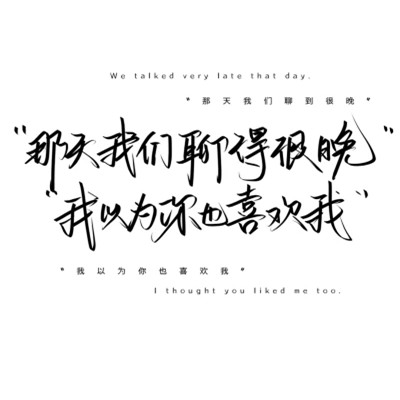 We talked very late that day.
"那天我们聊到很晚"
"那天我们聊得很晚"
"我以为你也喜欢我"
"我以为你也喜欢我"
I thought you liked me too.